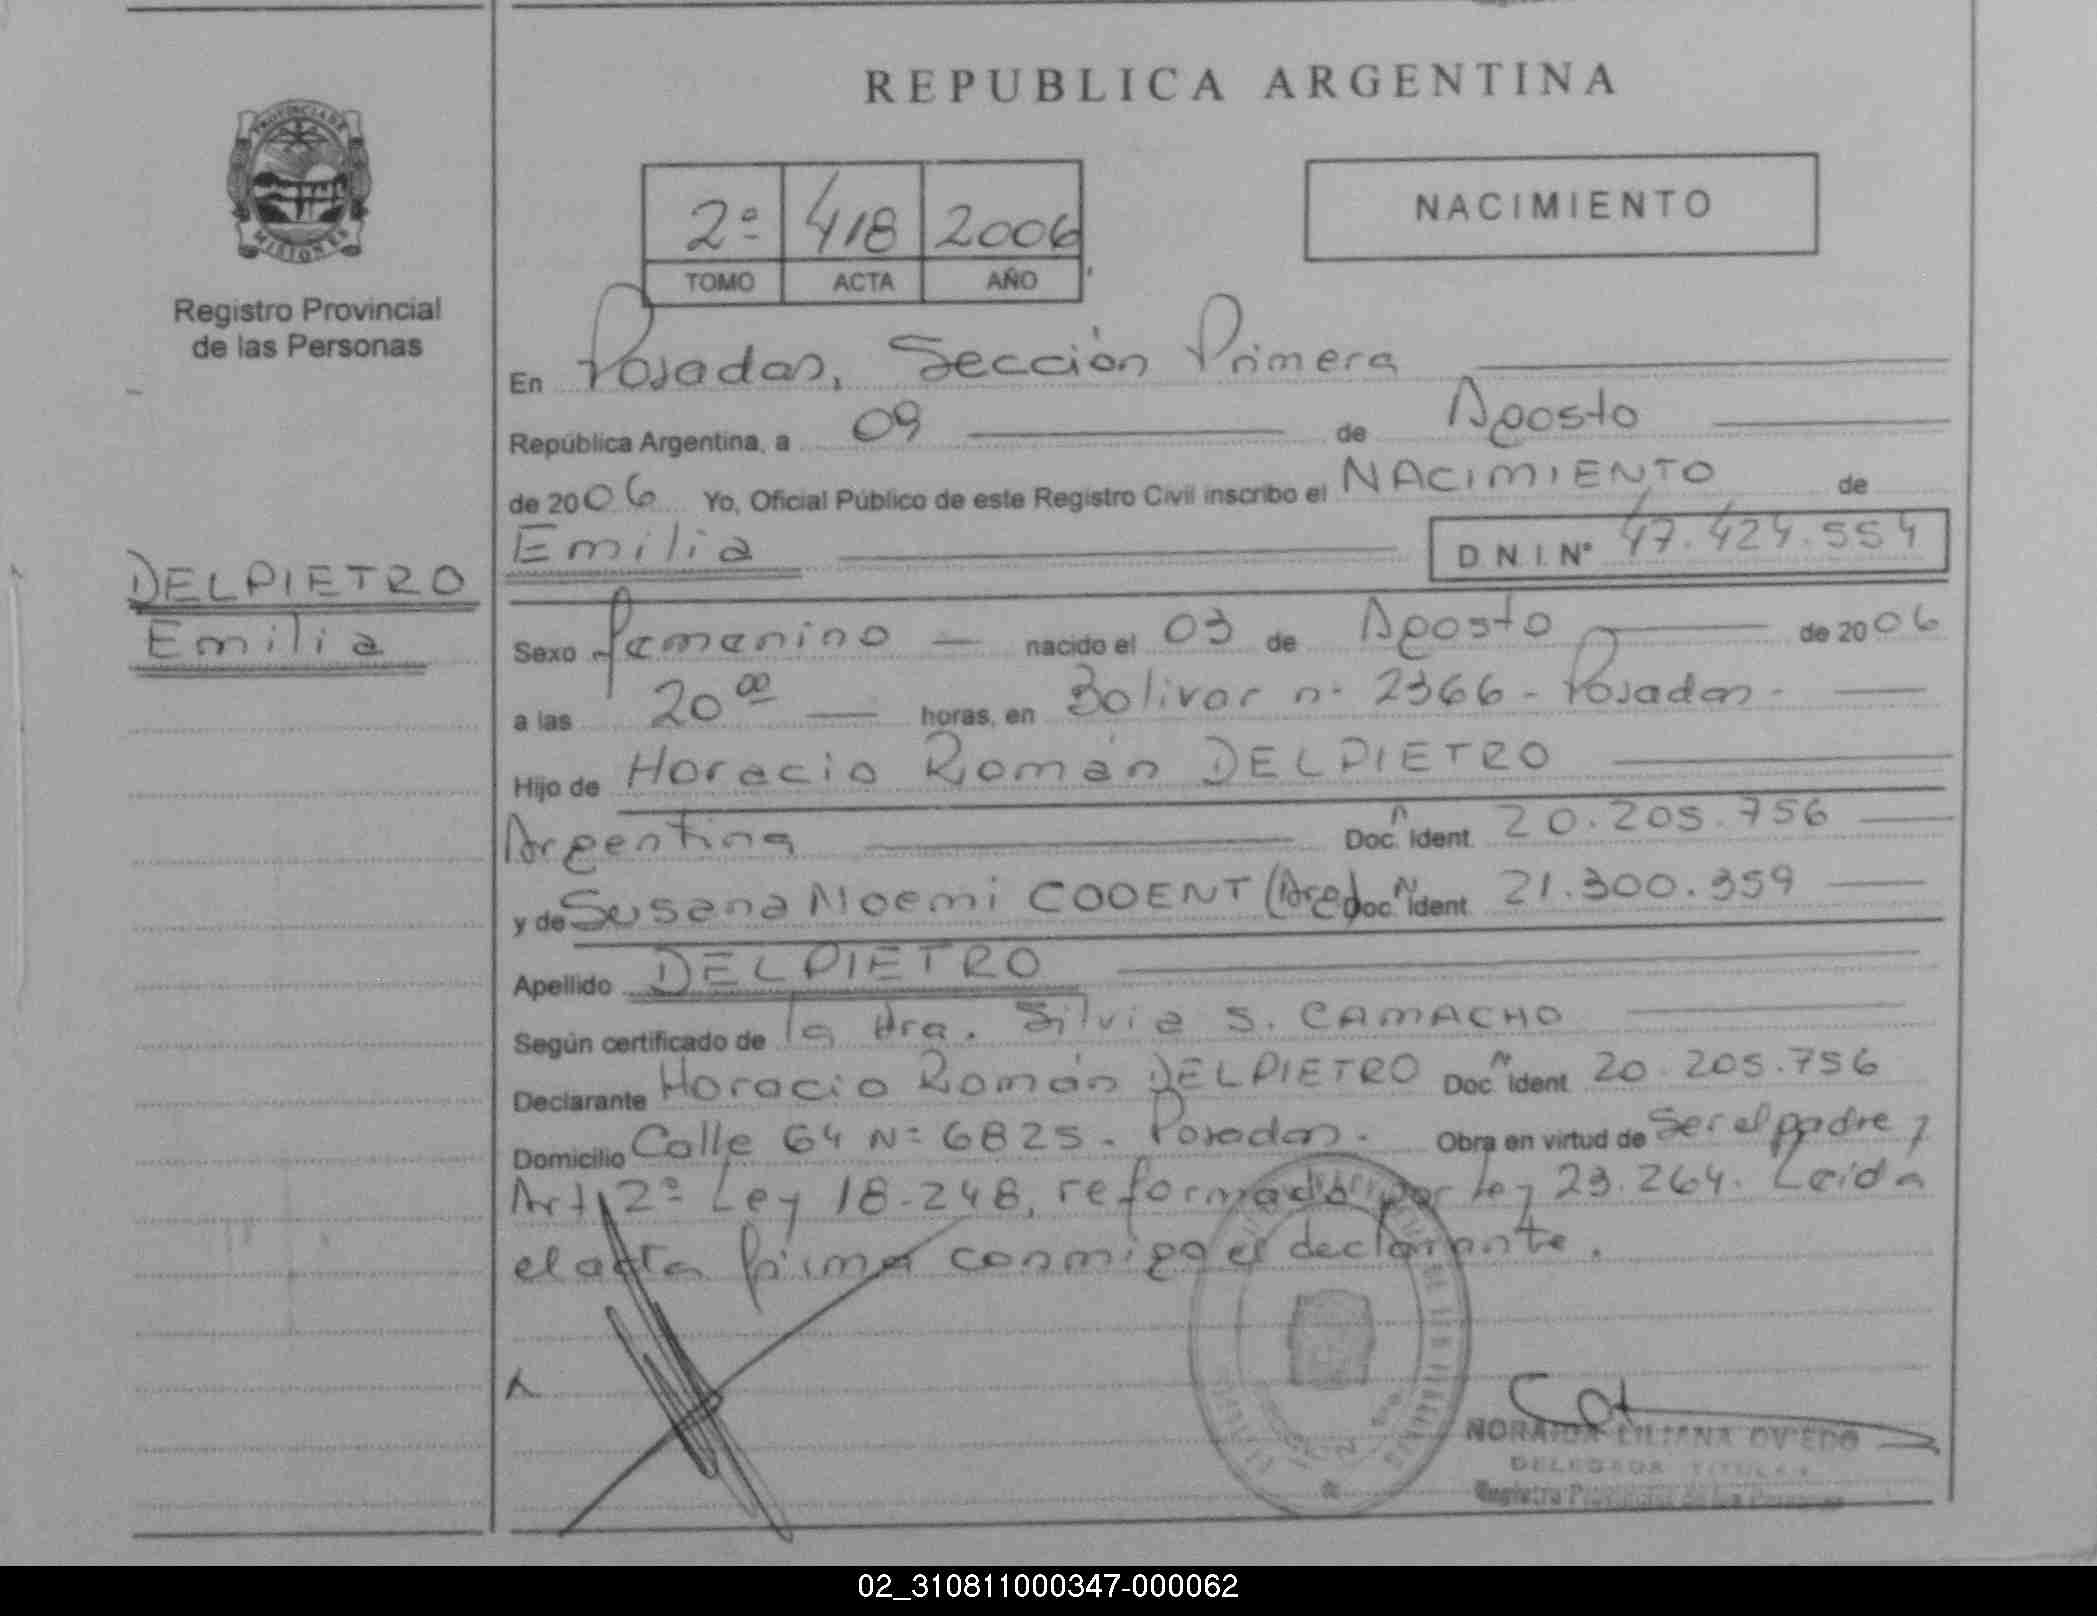 REPUBLICA ARGENTINA
PROVINCIA DE
MISIONES
Registro Provincial
de las Personas
2º 418 2006
TOMO ACTA AÑO
NACIMIENTO
En Posadas, Sección Primera
República Argentina, a 09 de Agosto
de 2006 Yo, Oficial Público de este Registro Civil inscribo el NACIMIENTO de
Emilia D.N.I. Nº 47.424.554
DELPIETRO
Emilia
Sexo femenino nacido el 03 de Agosto de 2006
a las 20 00 horas, en Bolivar nº 2366 - Posadas -
Hijo de Horacio Román DELPIETRO
Argentina Doc. N Ident. 20.205.756
y de Susana Noemi CODENT (Arg) Doc. N Ident 21.300.359
Apellido DELPIETRO
Según certificado de la dra. Silvia S. CAMACHO
Declarante Horacio Román DELPIETRO Doc N Ident 20.205.756
Domicilio Calle 64 Nº 6825. Posadas. Obra en virtud de Ser el padre y
Art. 2º Ley 18.248, reformado por Ley 23.264. Leida
el acta firma conmigo el declarante.
NORAIDA LILIANA OVIEDO
DELEGADA TITULAR
Registro Provincial de las Personas
02_310811000347-000062